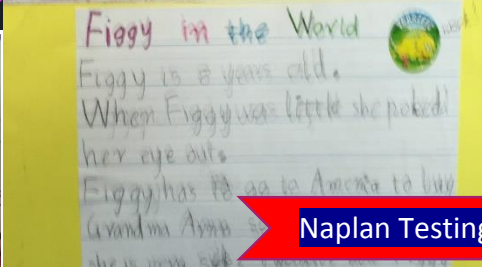 Figgy in the World
Figgy is 8 years old.
When Figgy was little she poked
her eye out.
Figgy has to go to America to buy
Grandma Ama
Naplan Testing
she is very